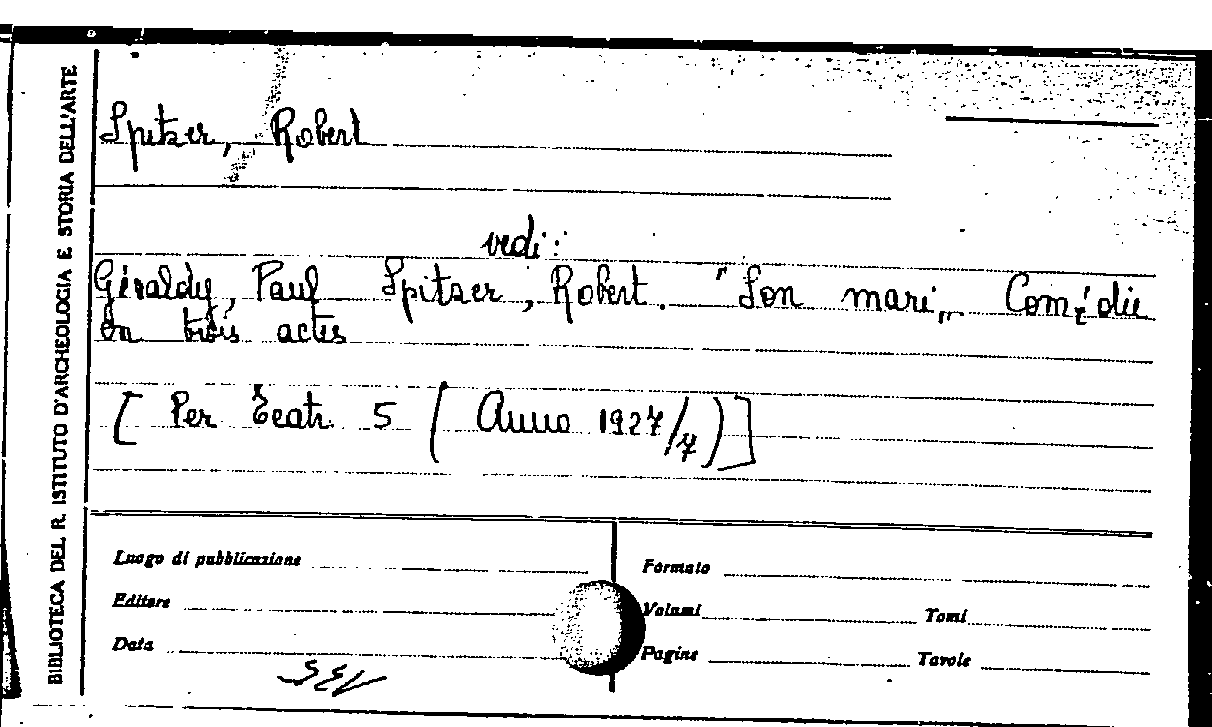 BIBLIOTECA DEL R. ISTITUTO D'ARCHEOLOGIA E STORIA DELL'ARTE
Spitzer, Robert
vedi:
Géraldy, Paul Spitzer, Robert. "Son mari„ Comédie
en trois actes
[ Per Teatr. 5 ( Anno 1927/7)]
Luogo di pubblicazione
Formato
Editore
Volumi Tomi
Data
Pagine Tavole